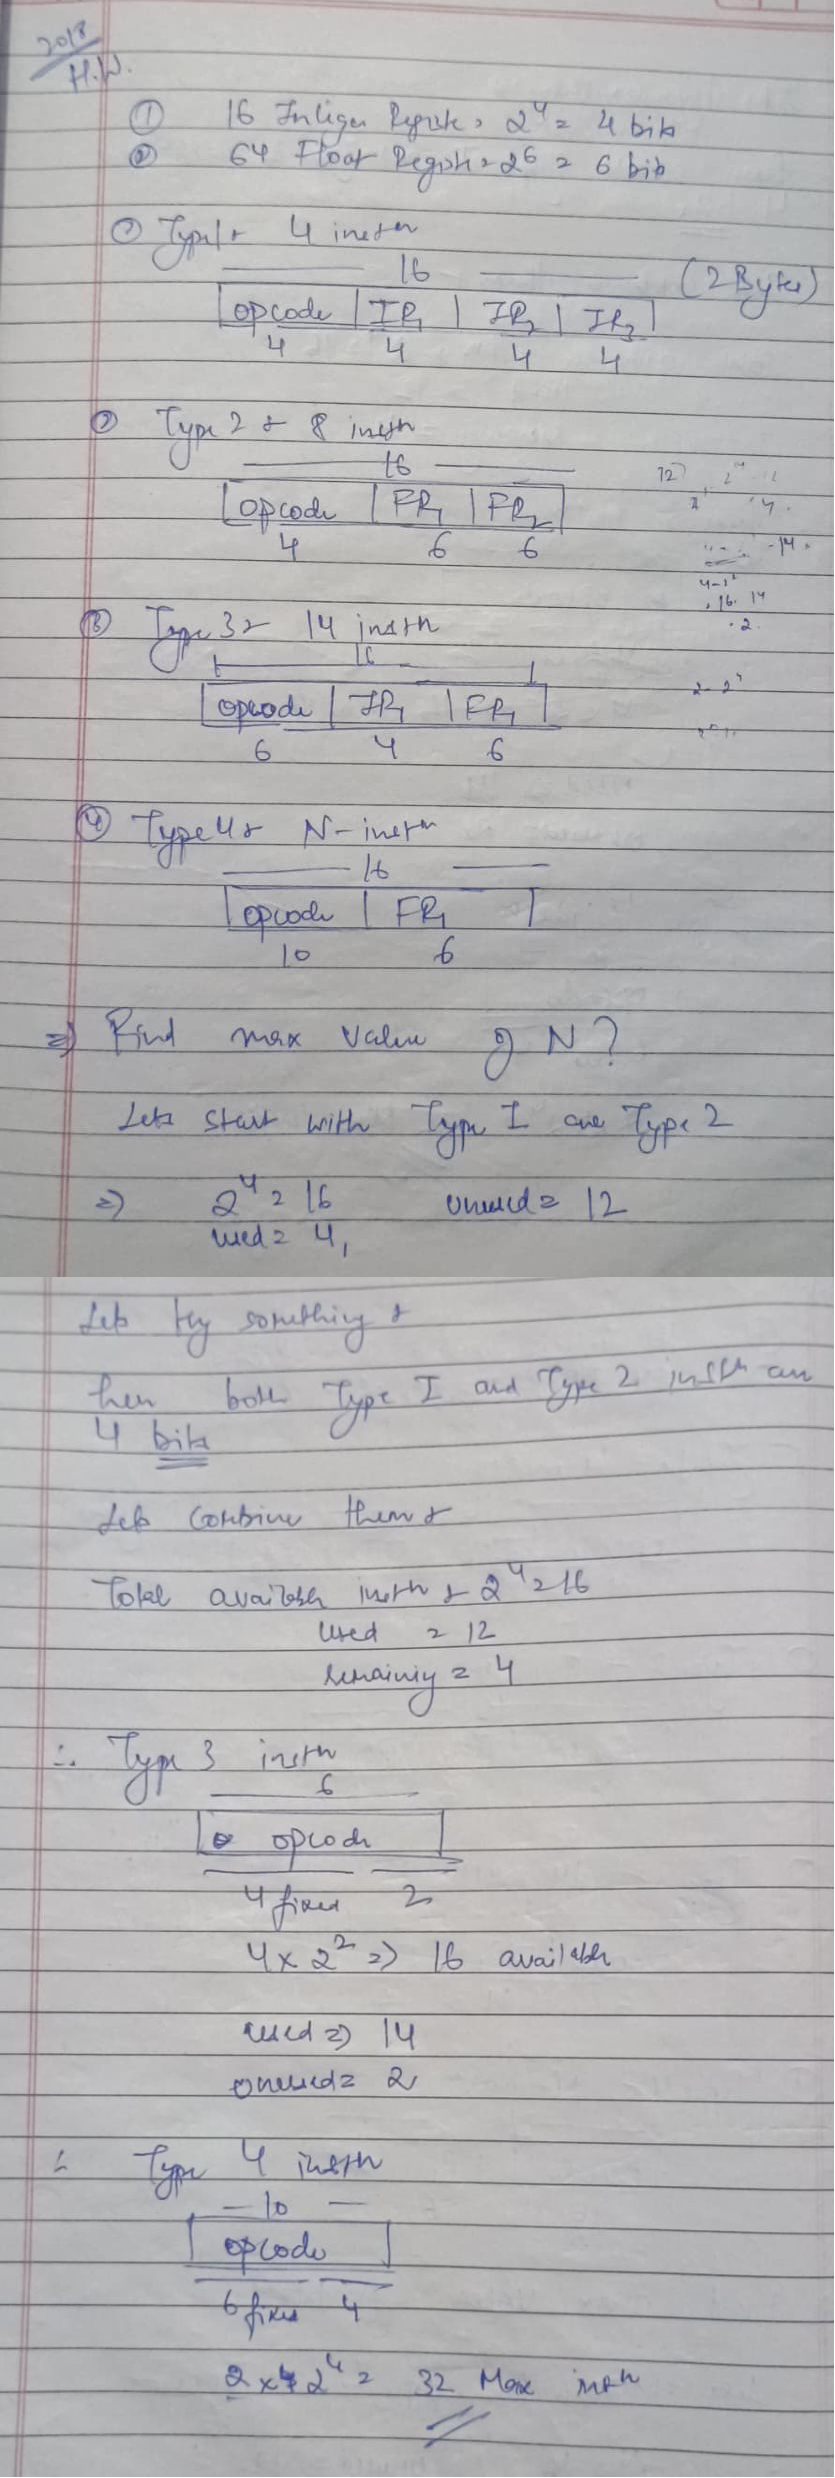 2018
H.W.
① 16 Integer Regist = 2⁴ = 4 bits
② 64 Float Regist = 2⁶ = 6 bits
① Type 1 : 4 instn
16 (2 Bytes)
opcode | IR₁ | IR₂ | IR₃
4 4 4 4
② Type 2 : 8 instn
16
opcode | FR₁ | FR₂
4 6 6
③ Type 3 : 14 instn
16
opcode | IR₁ | FR₁
6 4 6
④ Type 4 : N-instn
16
opcode | FR₁
10 6
⇒ Find max value of N?
Lets start with Type I and Type 2
⇒ 2⁴ = 16 unused = 12
used = 4,
Lets try something :
here both Type I and Type 2 instn are
4 bits
Lets combine them :
Total available instn : 2⁴ = 16
used = 12
remaining = 4
∴ Type 3 instn
6
opcode
4 fixed 2
4 × 2² ⇒ 16 available
used ⇒ 14
unused = 2
∴ Type 4 instn
10
opcode
6 fixed 4
2 × 2⁴ = 32 Max instn